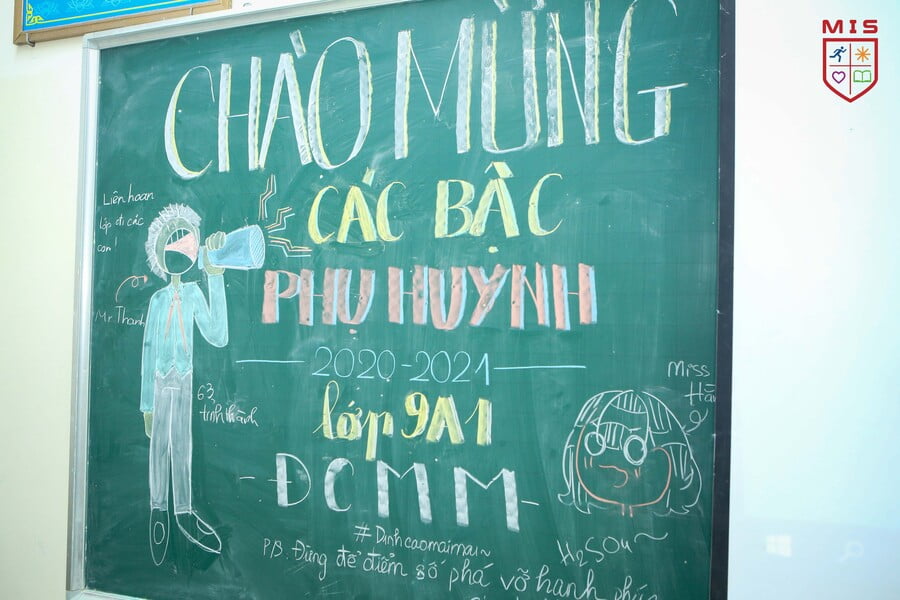 MIS
CHÀO MỪNG
CÁC BẬC
PHỤ HUYNH
2020-2021
lớp 9A1
-ĐCMM-
#Dinhcaomaimai~
P/S: Đừng để điểm số phá vỡ hạnh phúc
Liên hoan
lớp đi các
con!
Mr Thanh
63
tỉnh thành
Miss
H₂SO₄~